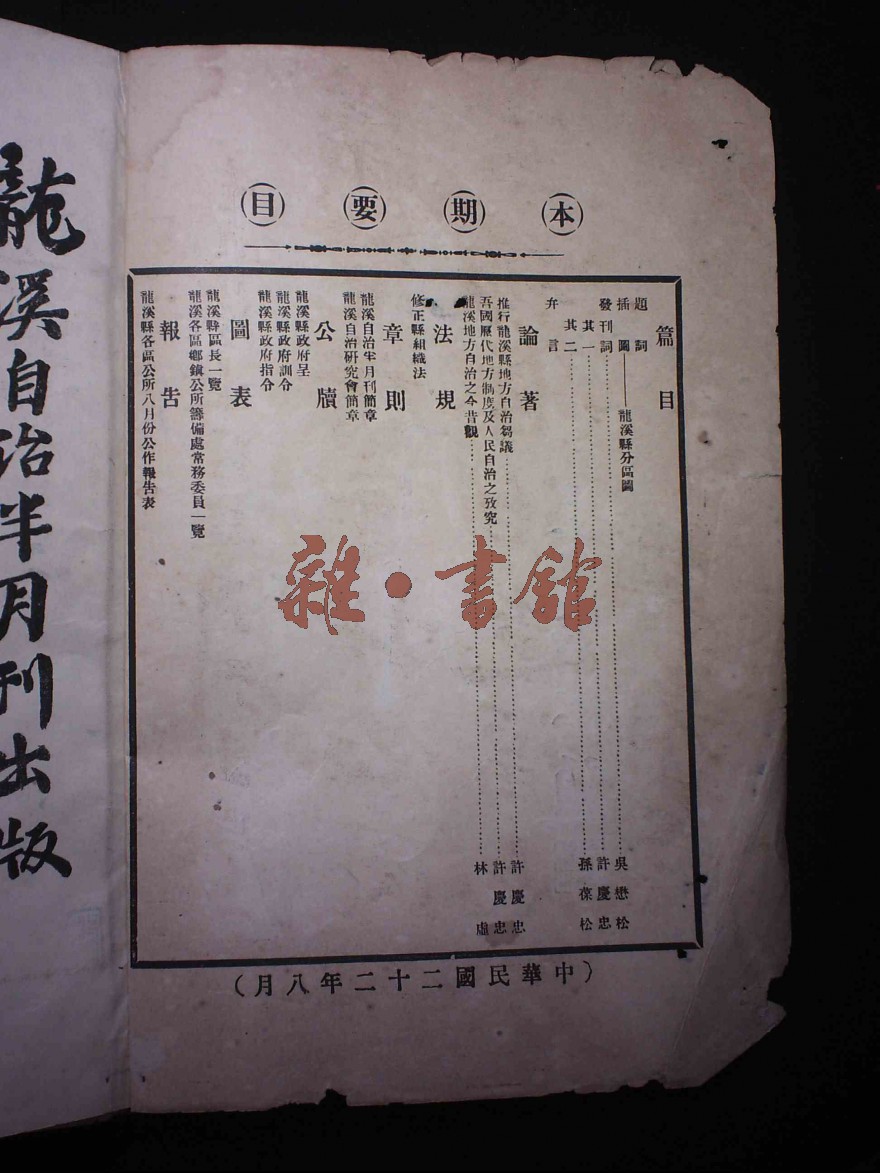 本期要目
篇目
題詞
插圖——龍溪縣分區圖
發刊詞 吳懋松
其一 許慶忠
其二 孫葆松
弁言
論著
推行龍溪縣地方自治芻議 許慶忠
吾國歷代地方制度及人民自治之攷究 許慶忠
龍溪地方自治之今昔觀 林虛
法規
修正縣組織法
章則
龍溪自治半月刊簡章
龍溪自治研究會簡章
公牘
龍溪縣政府呈
龍溪縣政府訓令
龍溪縣政府指令
圖表
龍溪縣區長一覽
龍溪各區鄉鎮公所籌備處常務委員一覽
報告
龍溪縣各區公所八月份公作報告表
（中華民國二十二年八月）
龍溪自治半月刊出版
雜·書館